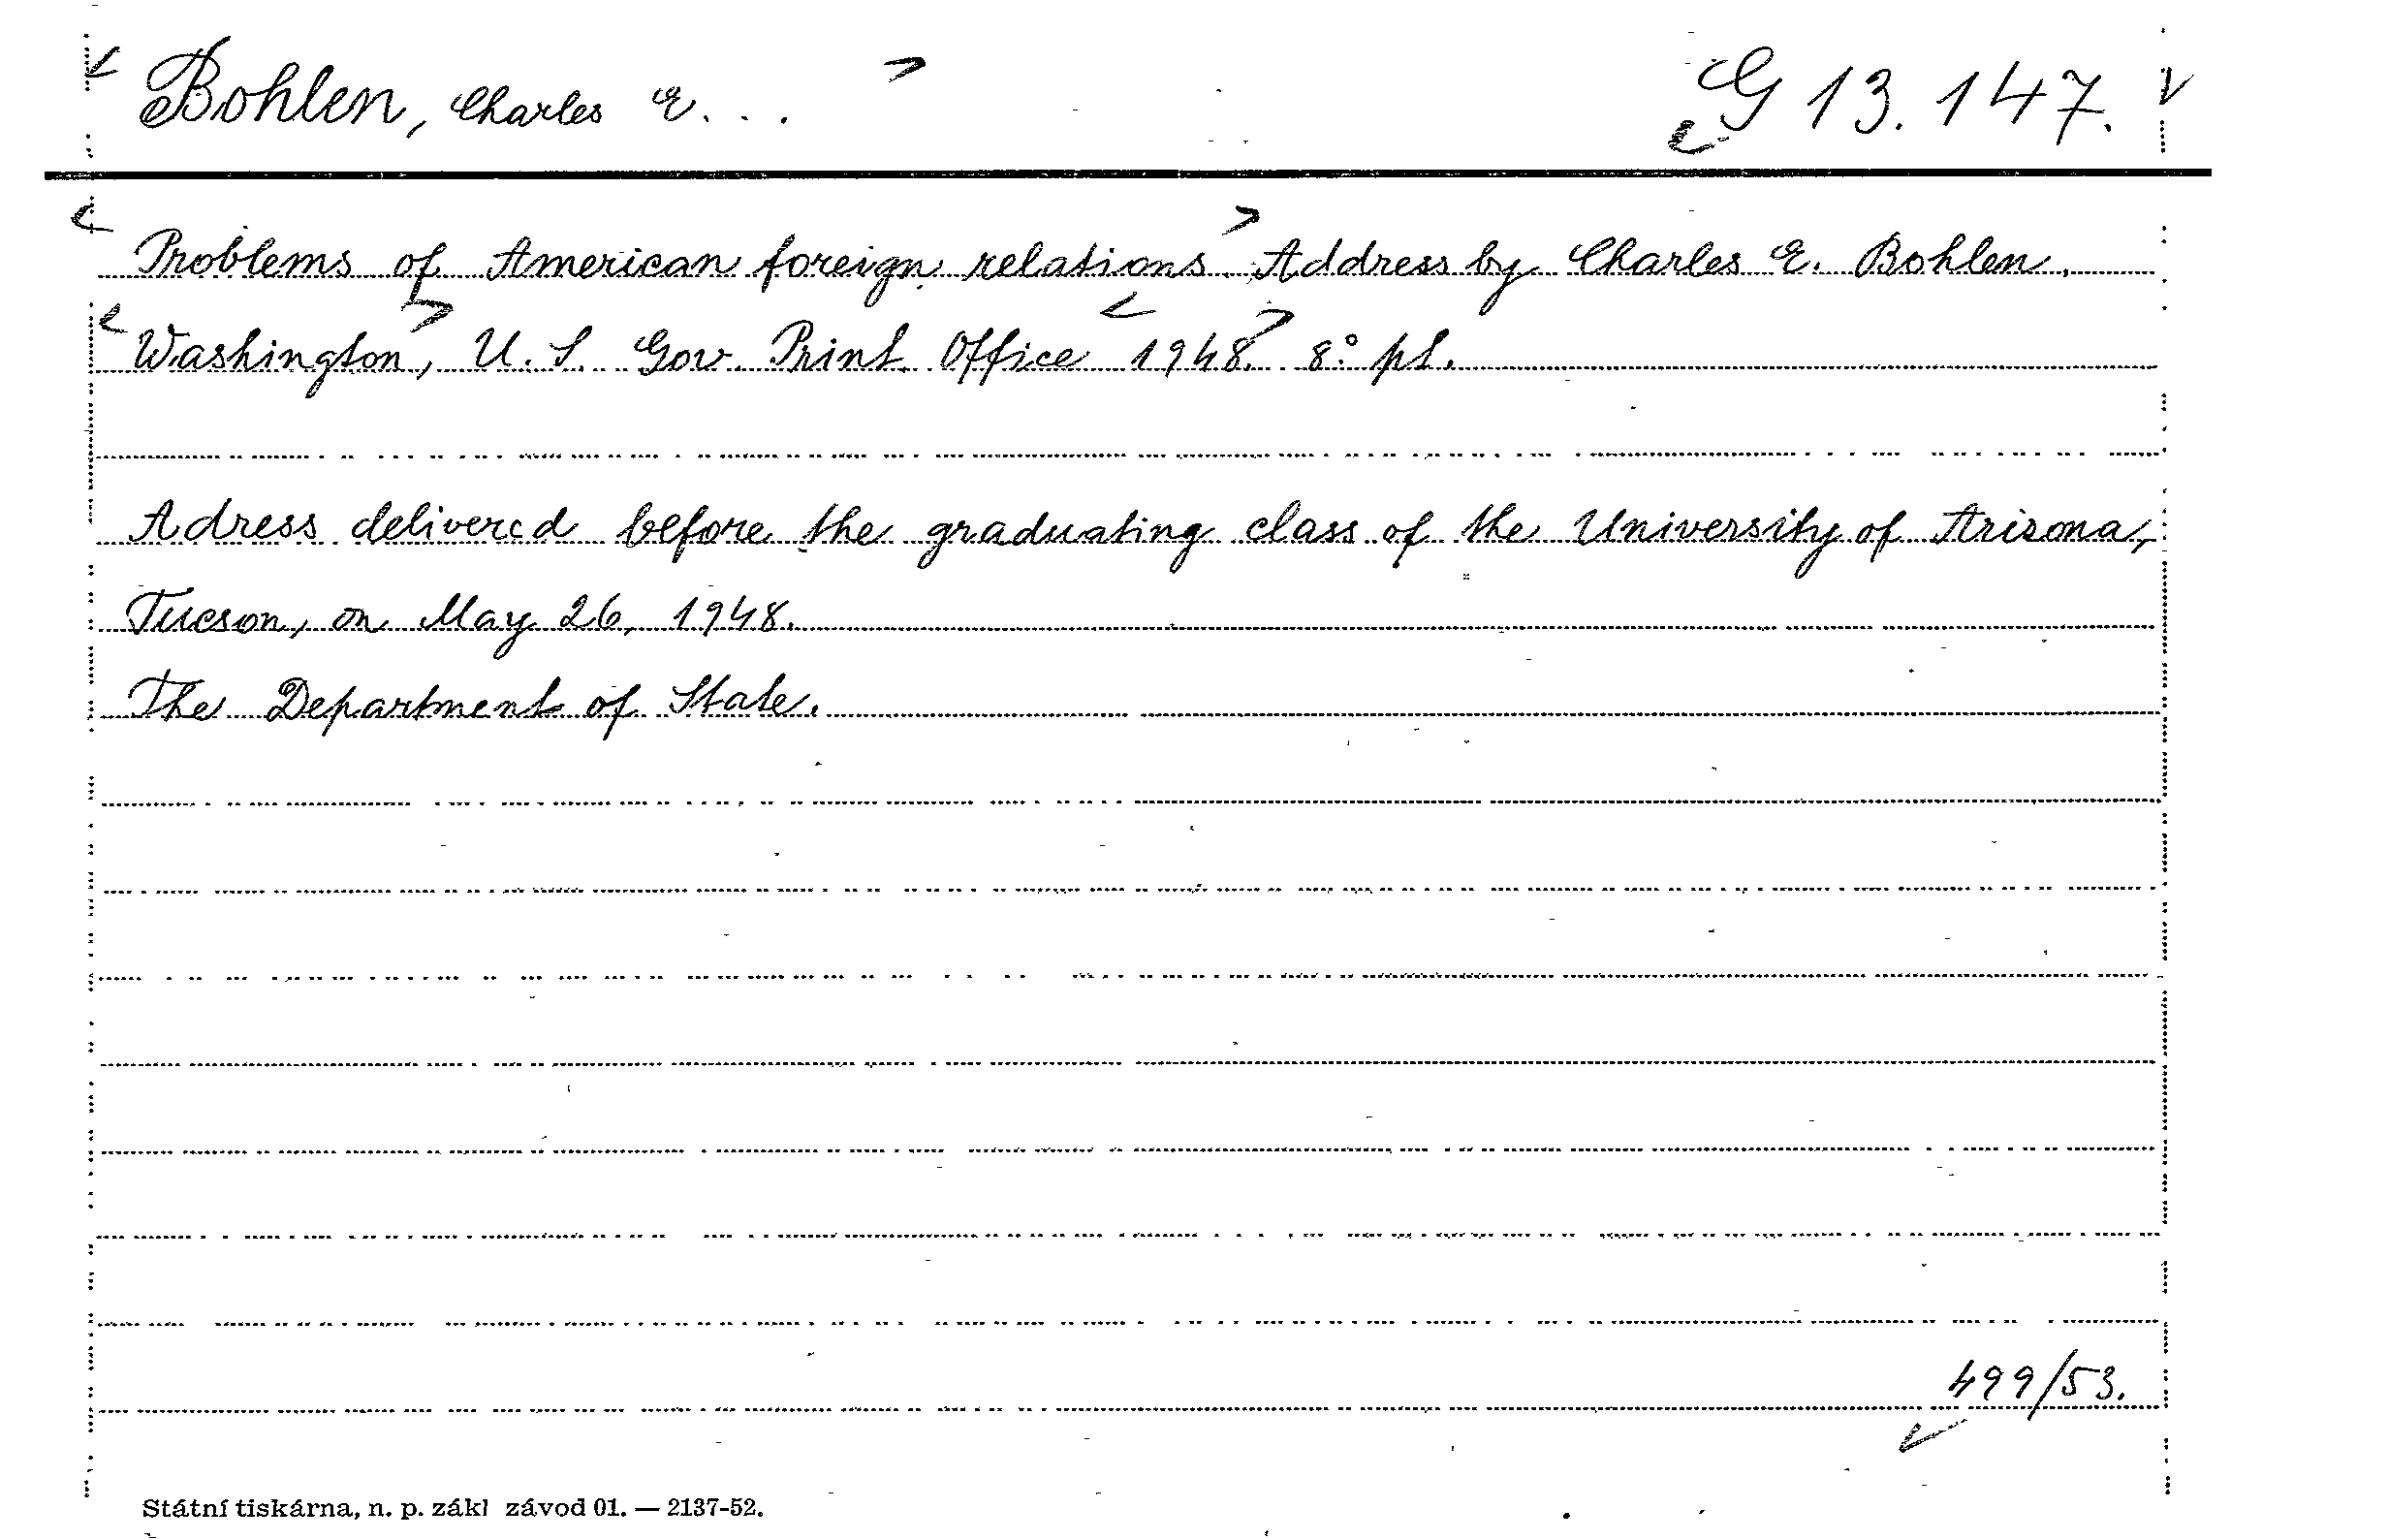 Bohlen, Charles E. . .
G 13.147.
Problems of American foreign relations. Address by Charles E. Bohlen.
Washington, U. S. Gov. Print. Office 1948. 8° pl.
Adress delivered before the graduating class of the University of Arisona,
Tucson, on May 26, 1948.
The Department of State.
499/53.
Státní tiskárna, n. p. zákl závod 01. — 2137-52.